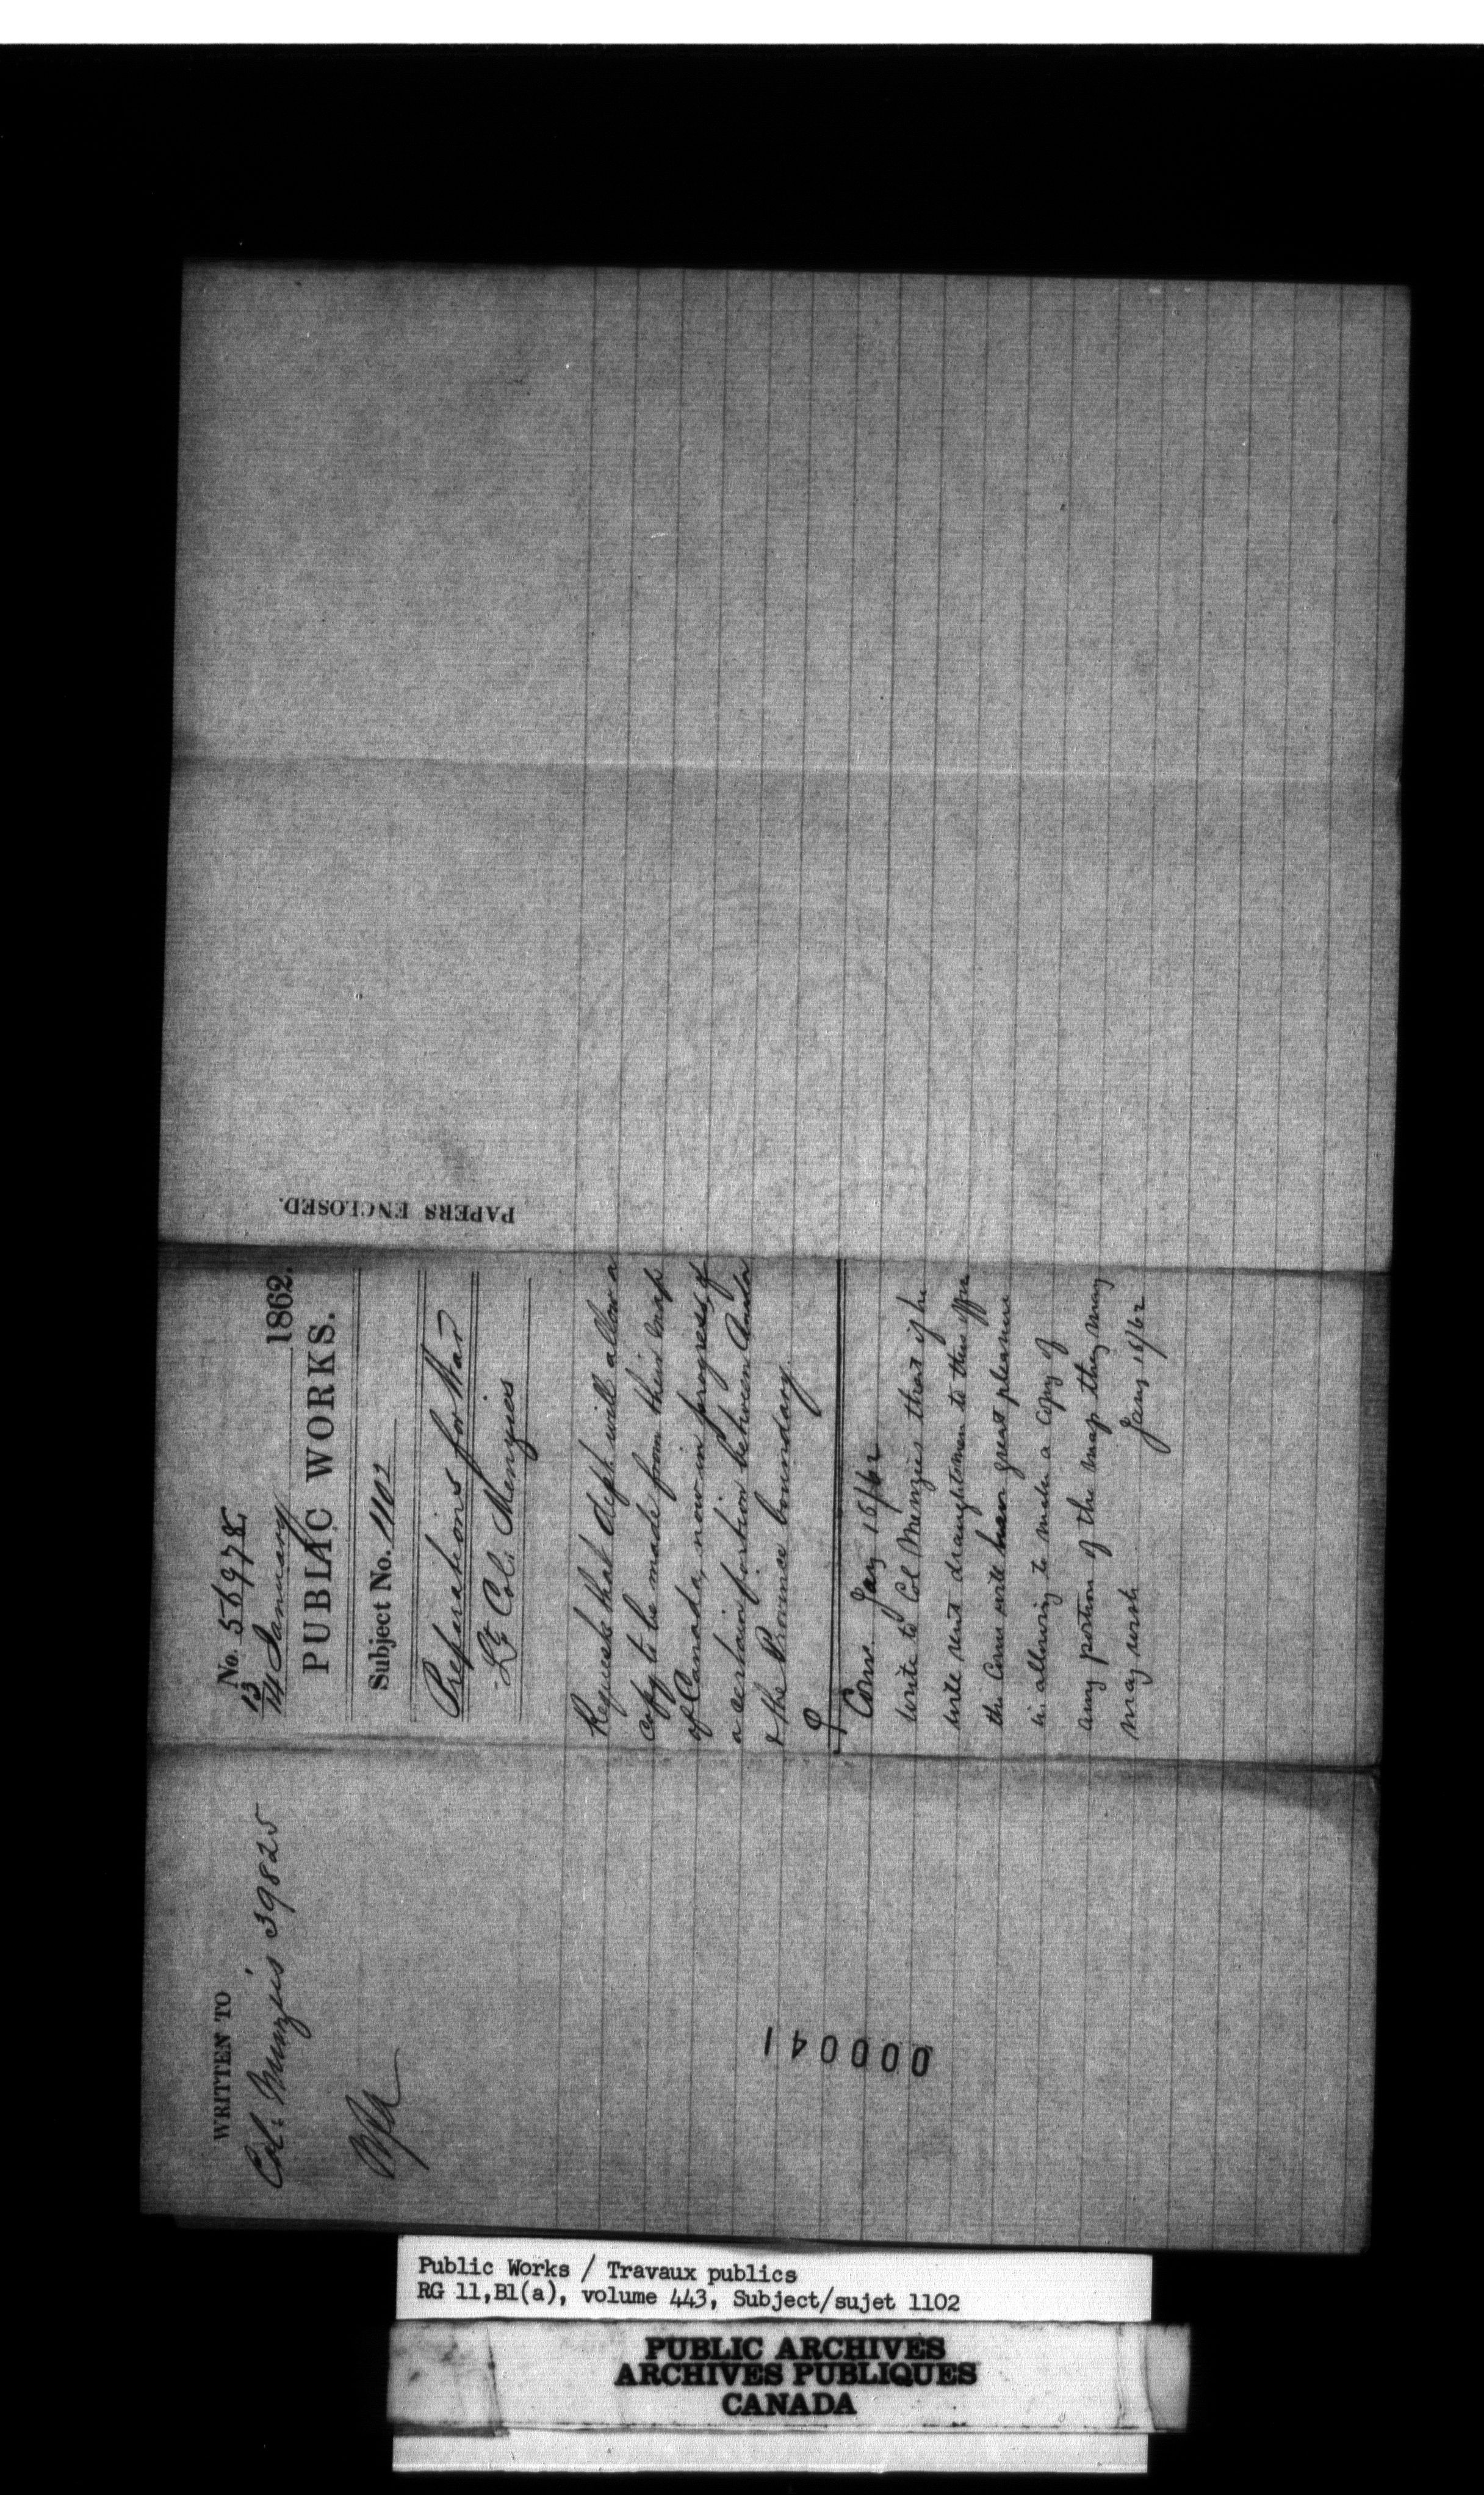 WRITTEN TO
Col: Menzies 39825
No. 56978
13 January 1862.
PUBLIC WORKS.
Subject No. 1102
Preparations for War
Lt Col: Menzies
Requests that Dept will allow a
copy to be made from their map
of Canada, now in progress, of
a certain portion between
& the Province boundary.
Com. Jany 15/62
Write to Col Menzies that if he
will send draughtsmen to this office
the Com will have great pleasure
in allowing to make a copy of
any portion of the map they may
may wish
Jany 15/62
PAPERS ENCLOSED.
000041
Public Works / Travaux publics
RG 11,B1(a), volume 443, Subject/sujet 1102
PUBLIC ARCHIVES
ARCHIVES PUBLIQUES
CANADA